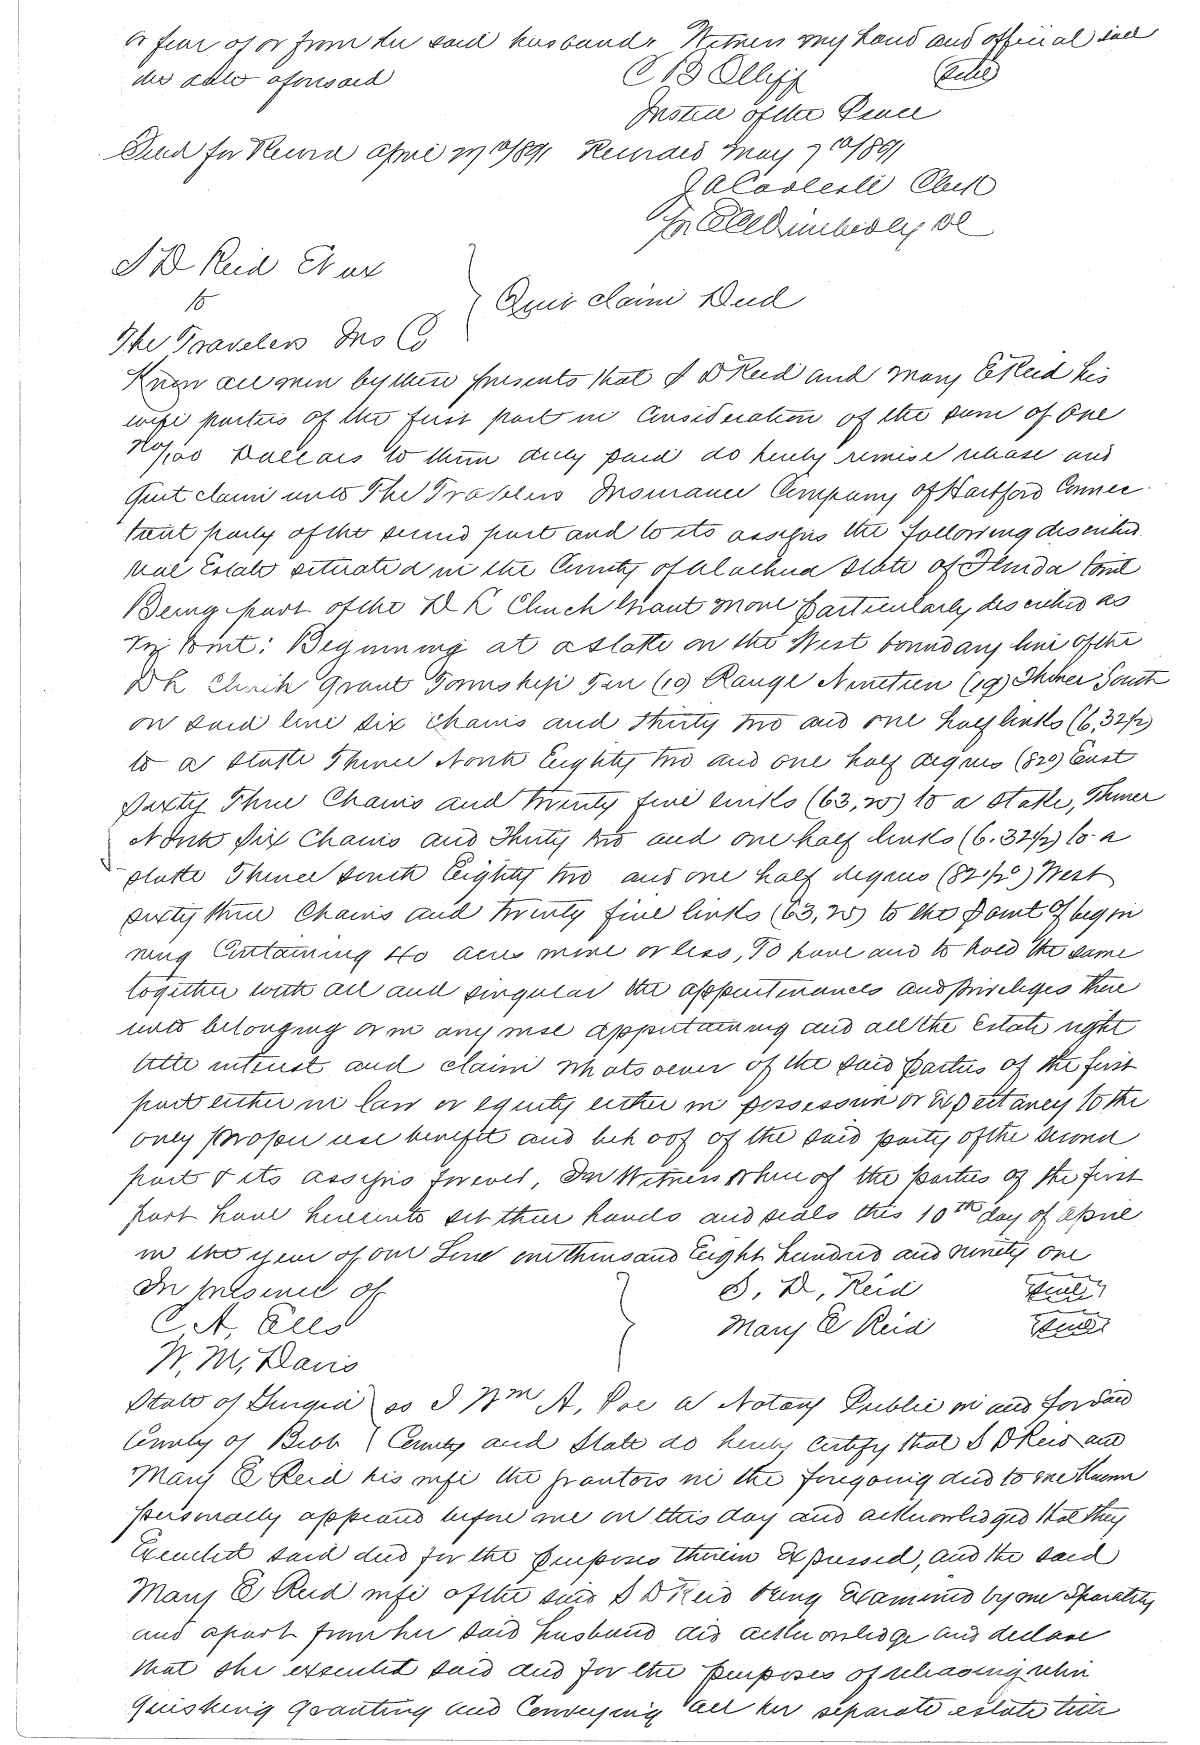 or fear of or from her said husband. Witness my hand and official seal
the date aforesaid C B Olliff (Seal)
Justice of the Peace
Filed for Record April 27th 1891 Recorded May 7th 1891
J A Carlisle Clerk
Pr Wimberly DC
S D Reid Et ux
to
Quit claim Deed
The Travelers Ins Co
Know all men by these presents that S D Reid and Mary E Reid his
wife parties of the first part in Consideration of the sum of One
no/100 Dollars to them duly paid do hereby remise release and
Quit claim unto The Travelers Insurance Company of Hartford Connec-
ticut party of the second part and to its assigns the following described
real Estate situated in the County of Alachua State of Florida towit
Being part of the D L Clinch Grant more particularly described as
towit: Beginning at a stake on the West boundary line of the
D L Clinch Grant Township Ten (10) Range Nineteen (19) Thence South
on said line six chains and thirty two and one half links (6,32½)
to a stake Thence North Eighty two and one half degrees (82º) East
Sixty Three Chains and twenty five links (63,25) to a stake, Thence
North Six Chains and Thirty two and one half links (6.32½) to a
stake Thence south Eighty two and one half degrees (82½º) West
sixty three Chains and twenty five links (63,25) to the point of begin
ning Containing 40 acres more or less, To have and to hold the same
together with all and singular the appurtenances and privileges there
unto belonging or in any wise appertaining and all the Estate right
title interest and claim whatsoever of the said parties of the first
part either in law or equity either in possession or Expectancy to the
only proper use benefit and behoof of the said party of the second
part & its assigns forever, In Witness whereof the parties of the first
part have hereunto set their hands and seals this 10th day of April
in the year of our Lord one thousand Eight hundred and ninety one
In presence of S, D, Reid (Seal)
C. A, Ells Mary E Reid (Seal)
W, M, Davis
State of Georgia ) ss I Wm A, Poe a Notary Public in and for said
County of Bibb ( County and State do hereby certify that S D Reid and
Mary E Reid his wife the grantors in the foregoing deed to me Known
personally appeared before me on this day and acknowledged that they
Executed said deed for the purposes therein Expressed, and the said
Mary E Reid wife of the said S D Reid being Examined by me separately
and apart from her said husband did acknowledge and declare
that she executed said deed for the purposes of releasing relin
quishing granting and Conveying all her separate estate title